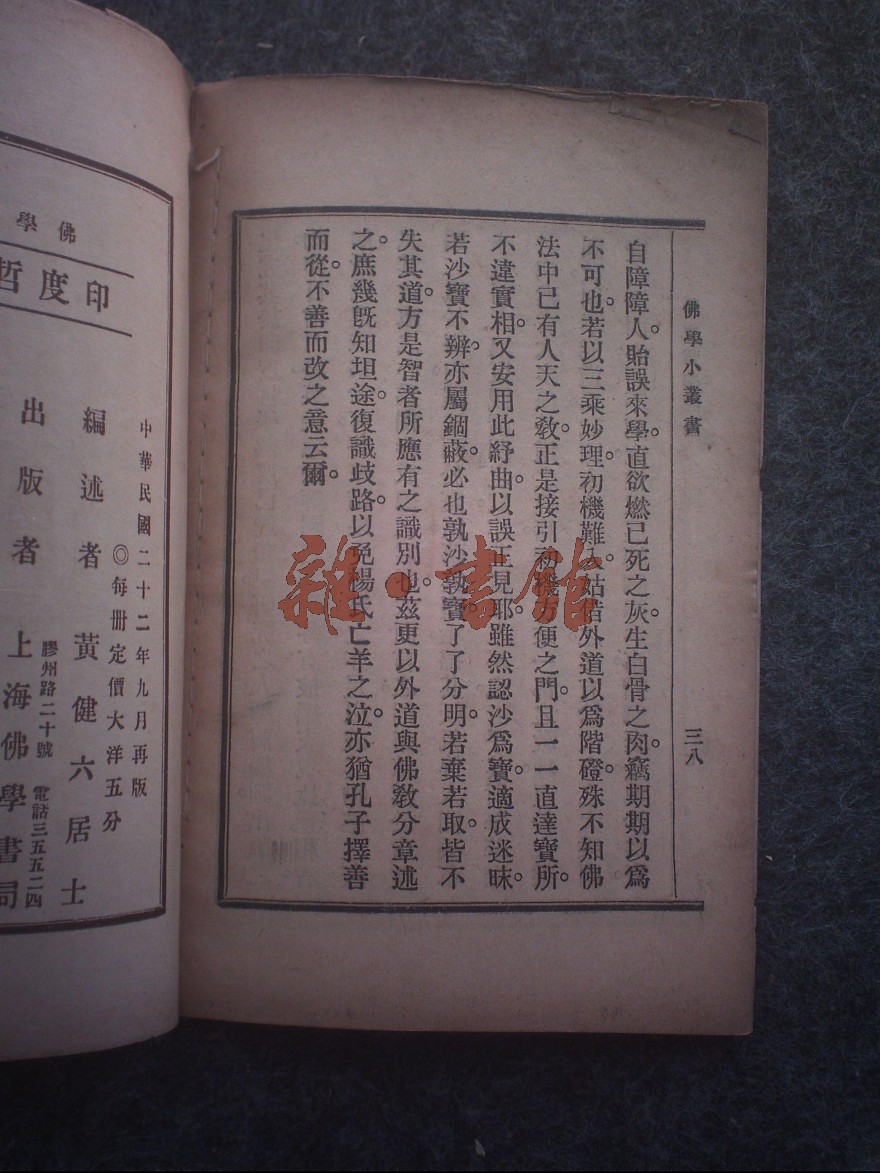 佛學小叢書
三八
自障障人。貽誤來學。直欲燃已死之灰。生白骨之肉。竊期期以爲
不可也。若以三乘妙理。初機難入。姑借外道以爲階磴。殊不知佛
法中已有人天之教。正是接引初機方便之門。且一一直達寶所。
不違實相。又安用此紆曲。以誤正見耶。雖然認沙爲寶。適成迷昧。
若沙寶不辨。亦屬錮蔽。必也孰沙孰寶。了了分明。若棄若取。皆不
失其道。方是智者所應有之識別也。茲更以外道與佛教分章述
之。庶幾既知坦途。復識歧路。以免楊氏亡羊之泣。亦猶孔子擇善
而從。不善而改之意云爾。
雜·書館
佛學
印度哲
中華民國二十二年九月再版
◎每冊定價大洋五分
編述者 黃健六居士
出版者 上海佛學書局
膠州路二十號 電話三五五二四